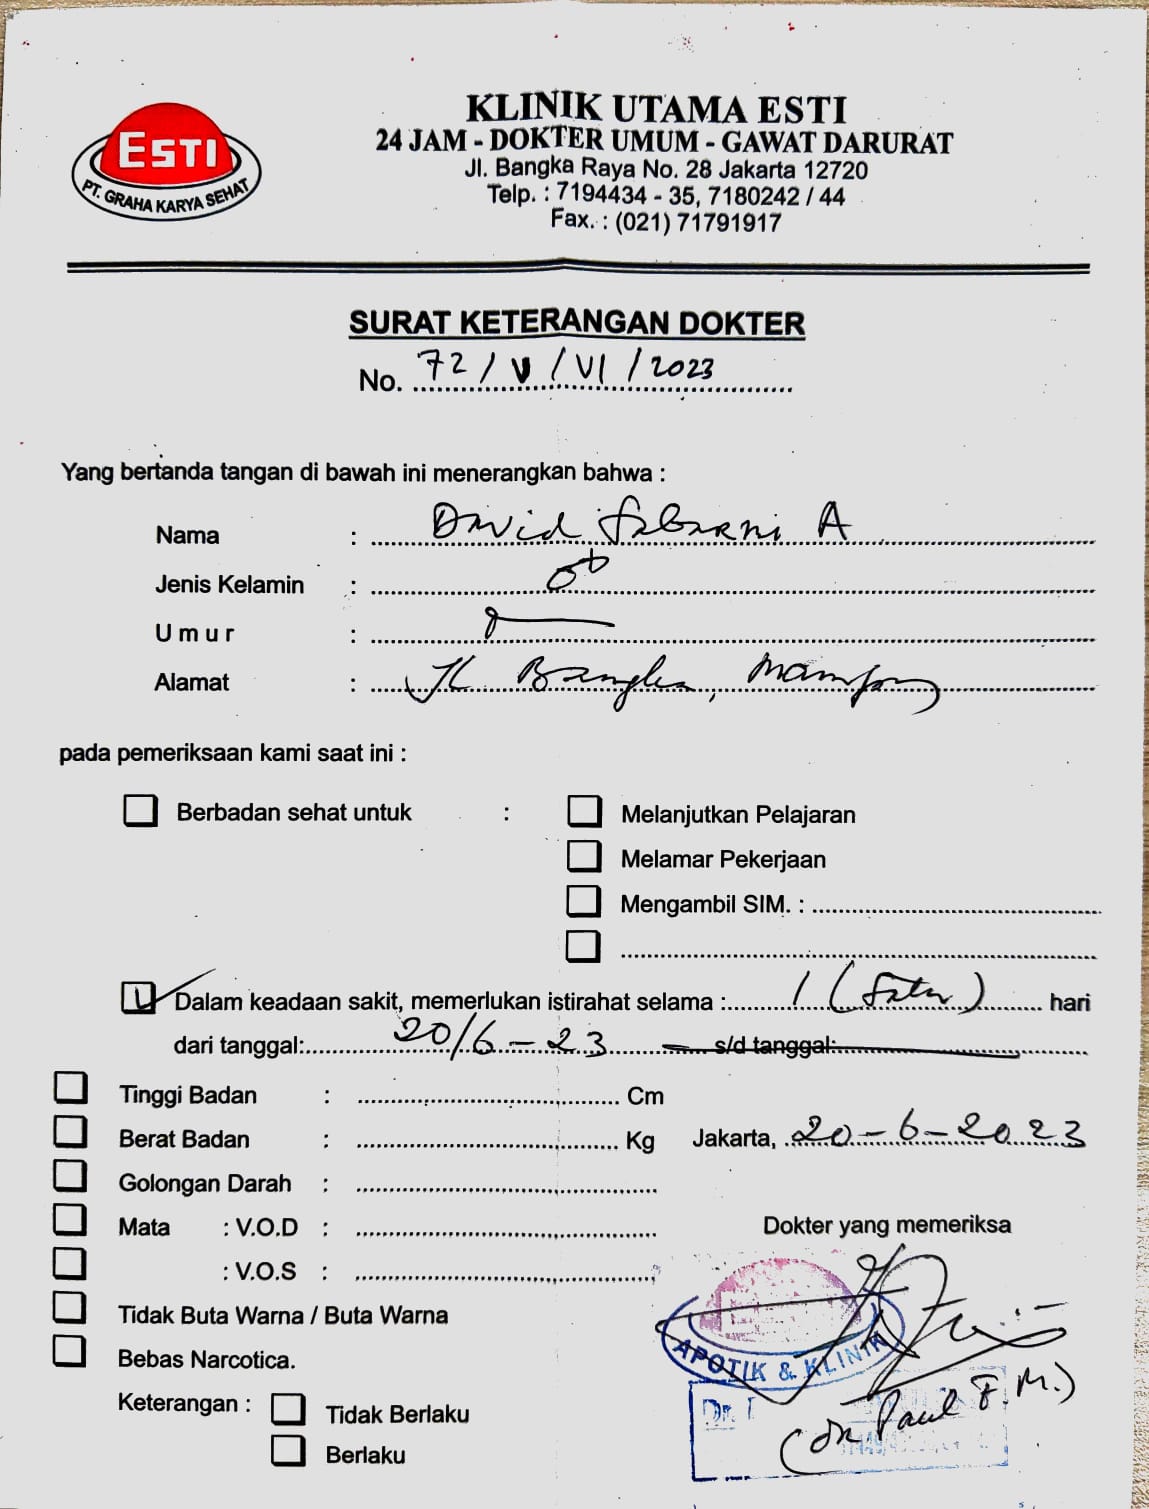 ESTI
PT. GRAHA KARYA SEHAT
KLINIK UTAMA ESTI
24 JAM - DOKTER UMUM - GAWAT DARURAT
Jl. Bangka Raya No. 28 Jakarta 12720
Telp. : 7194434 - 35, 7180242 / 44
Fax. : (021) 71791917
SURAT KETERANGAN DOKTER
No. 72 / V / VI / 2023
Yang bertanda tangan di bawah ini menerangkan bahwa :
Nama : David A
Jenis Kelamin :
Umur :
Alamat : Jl. Bangka, Mampang
pada pemeriksaan kami saat ini :
Berbadan sehat untuk : Melanjutkan Pelajaran
Melamar Pekerjaan
Mengambil SIM. :
Dalam keadaan sakit, memerlukan istirahat selama : 1 (Satu) hari
dari tanggal: 20/6-23 s/d tanggal:
Tinggi Badan : Cm
Berat Badan : Kg Jakarta, 20-6-2023
Golongan Darah :
Mata : V.O.D :
: V.O.S :
Dokter yang memeriksa
Tidak Buta Warna / Buta Warna
Bebas Narcotica.
Keterangan : Tidak Berlaku
Berlaku
APOTIK & KLINIK
Dr.
(dr Paul F. M.)